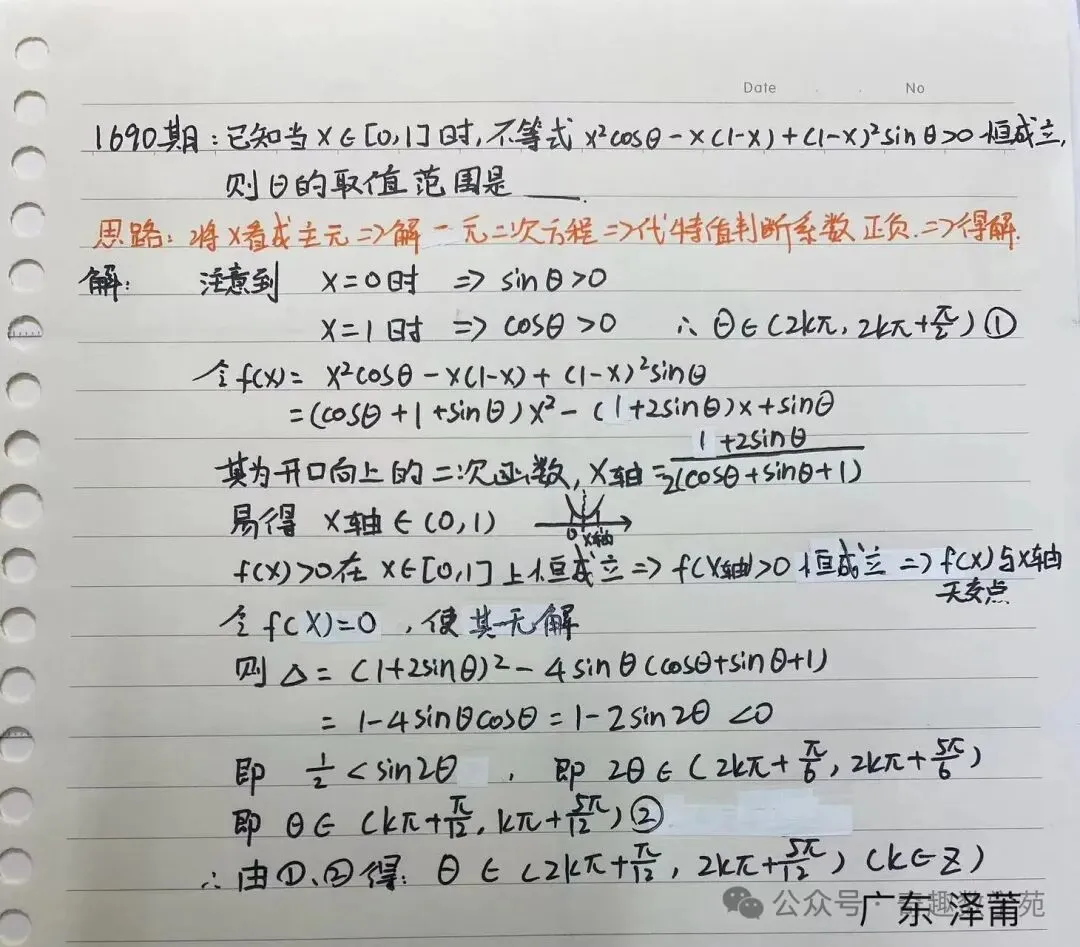 Date . . No
1690期:已知当x∈[0,1]时,不等式 x²cosθ-x(1-x)+(1-x)²sinθ>0恒成立,
则θ的取值范围是____.
思路:将x看成主元=>解一元二次方程=>代特值判断系数正负.=>得解.
解: 注意到 x=0时 => sinθ>0
x=1时 => cosθ>0 ∴θ∈(2kπ, 2kπ+π/2)①
令f(x)= x²cosθ-x(1-x)+(1-x)²sinθ
=(cosθ+1+sinθ)x²-(1+2sinθ)x+sinθ
其为开口向上的二次函数, x轴=(1+2sinθ)/(2(cosθ+sinθ+1))
易得 x轴∈(0,1) 0 x轴
f(x)>0在 x∈[0,1]上恒成立=> f(x轴)>0 恒成立=> f(x)与x轴
无交点
令 f(x)=0 ,使其无解
则△= (1+2sinθ)²-4sinθ(cosθ+sinθ+1)
= 1-4sinθcosθ=1-2sin2θ <0
即 1/2<sin2θ , 即 2θ∈(2kπ+π/6, 2kπ+5π/6)
即 θ∈(kπ+π/12, kπ+5π/12)②
∴由①、②得: θ∈(2kπ+π/12, 2kπ+5π/12)(k∈Z)
公众号 苑
广东 泽莆